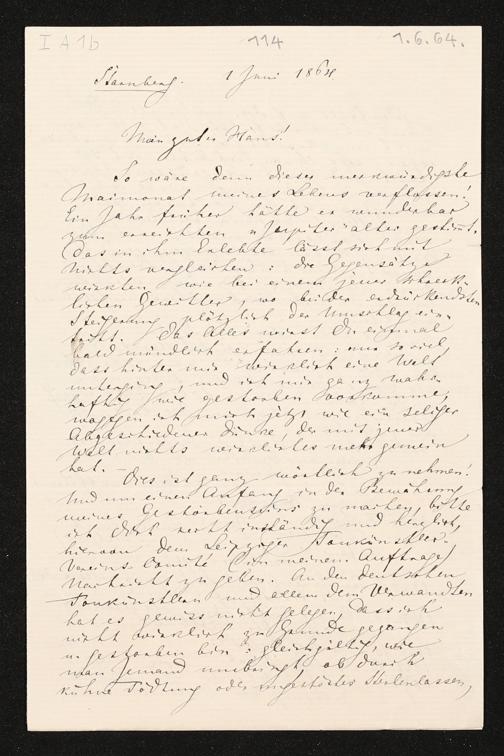 I A 1b 114 1.6.64.
Starnberg. 1 Juni 1864
Mein guter Hans!
So wäre denn dieser merkwürdigste
Maimonat meines Lebens verflossen!
Ein Jahr früher hätte er wunderbar
zum erreichten „Jupiter"alter gestimmt.
Das in ihm Erlebte lässt sich mit
Nichts vergleichen: die Gegensätze
wirkten wie bei einem jener schreck-
lichen Gewitter, wo bei der erdrückendsten
Steigerung plötzlich der Umschlag ein-
tritt. Das Alles wirst Du einmal
bald mündlich erfahren: nur so viel,
dass hinter mir wirklich eine Welt
unterging, und ich mir ganz wahr-
haftig wie gestorben vorkomme,
wogegen ich mich jetzt wie ein seliger
Abgeschiedener dünke, der mit jener
Welt nichts wirkliches mehr gemein
hat. —
Dies ist ganz wörtlich zu nehmen!
Und um einen Anfang in der Bewährung
meines Gestorbenseins zu machen, bitte
ich Dich recht inständig und herzlich,
hiervon dem Leipziger Tonkünstler-
Vereins-Comité (in meinem Auftrage)
Nachricht zu geben. An den deutschen
Tonkünstlern und allem dem Verwandten
hat es gewiss nicht gelegen, dass ich
nicht wirklich zu Grunde gegangen
u. gestorben bin: gleichgültig, wie
man Jemand umbringt, ob durch
kühne Tödtung oder ungestörtes Sterbenlassen,